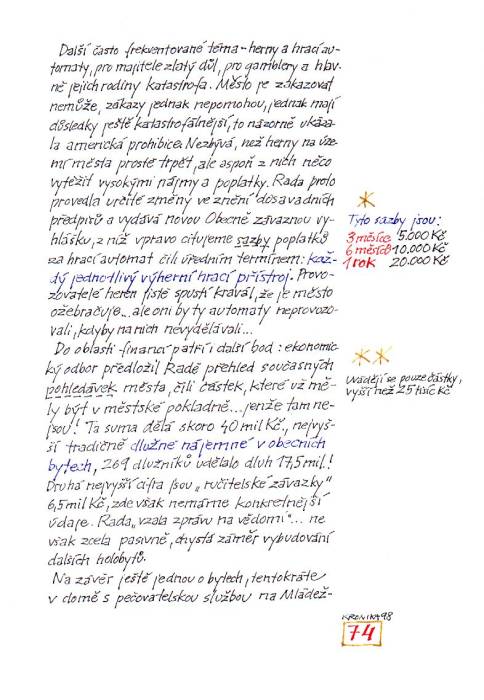 Další často frekventované téma - herny a hrací au-
tomaty, pro majitele zlatý důl, pro gamblery a hlav-
ně jejich rodiny katastrofa. Město je zakazovat
nemůže, zákazy jednak nepomohou, jednak mají
důsledky ještě katastrofálnější, to názorně ukáza-
la americká prohibice. Nezbývá, než herny na úze-
mí města prostě trpět, ale aspoň z nich něco
vytěžit vysokými nájmy a poplatky. Rada proto
provedla určité změny ve znění dosavadních
předpisů a vydává novou Obecně závaznou vy-
hlášku, z níž vpravo citujeme sazby poplatků
za hrací automat čili úředním termínem: kaž-
dý jednotlivý výherní hrací přístroj. Provo-
zovatelé heren jistě spustí kravál, že je město
ožebračuje... ale oni by ty automaty neprovozo-
vali, kdyby na nich nevydělávali...
Do oblasti financí patří i další bod: ekonomic-
ký odbor předložil Radě přehled současných
pohledávek města, čili částek, které už mě-
ly být v městské pokladně... jenže tam ne-
jsou! Ta suma dělá skoro 40 mil Kč, nejvyš-
ší tradičně dlužné nájemné v obecních
bytech, 269 dlužníků udělalo dluh 17,5 mil!
Druhá nejvyšší cifra jsou „ručitelské závazky"
6,5 mil Kč, zde však nemáme konkrétnější
údaje. Rada „vzala zprávu na vědomí"... ne
však zcela pasivně, chystá záměr vybudování
dalších holobytů.
Na závěr ještě jednou o bytech, tentokráte
v domě s pečovatelskou službou na Mládež-
*
Tyto sazby jsou:
3 měsíce 5.000 Kč
6 měsíců 10.000 Kč
1 rok 20.000 Kč
**
Uvádějí se pouze částky,
vyšší než 25 tisíc Kč
KRONIKA 98
74